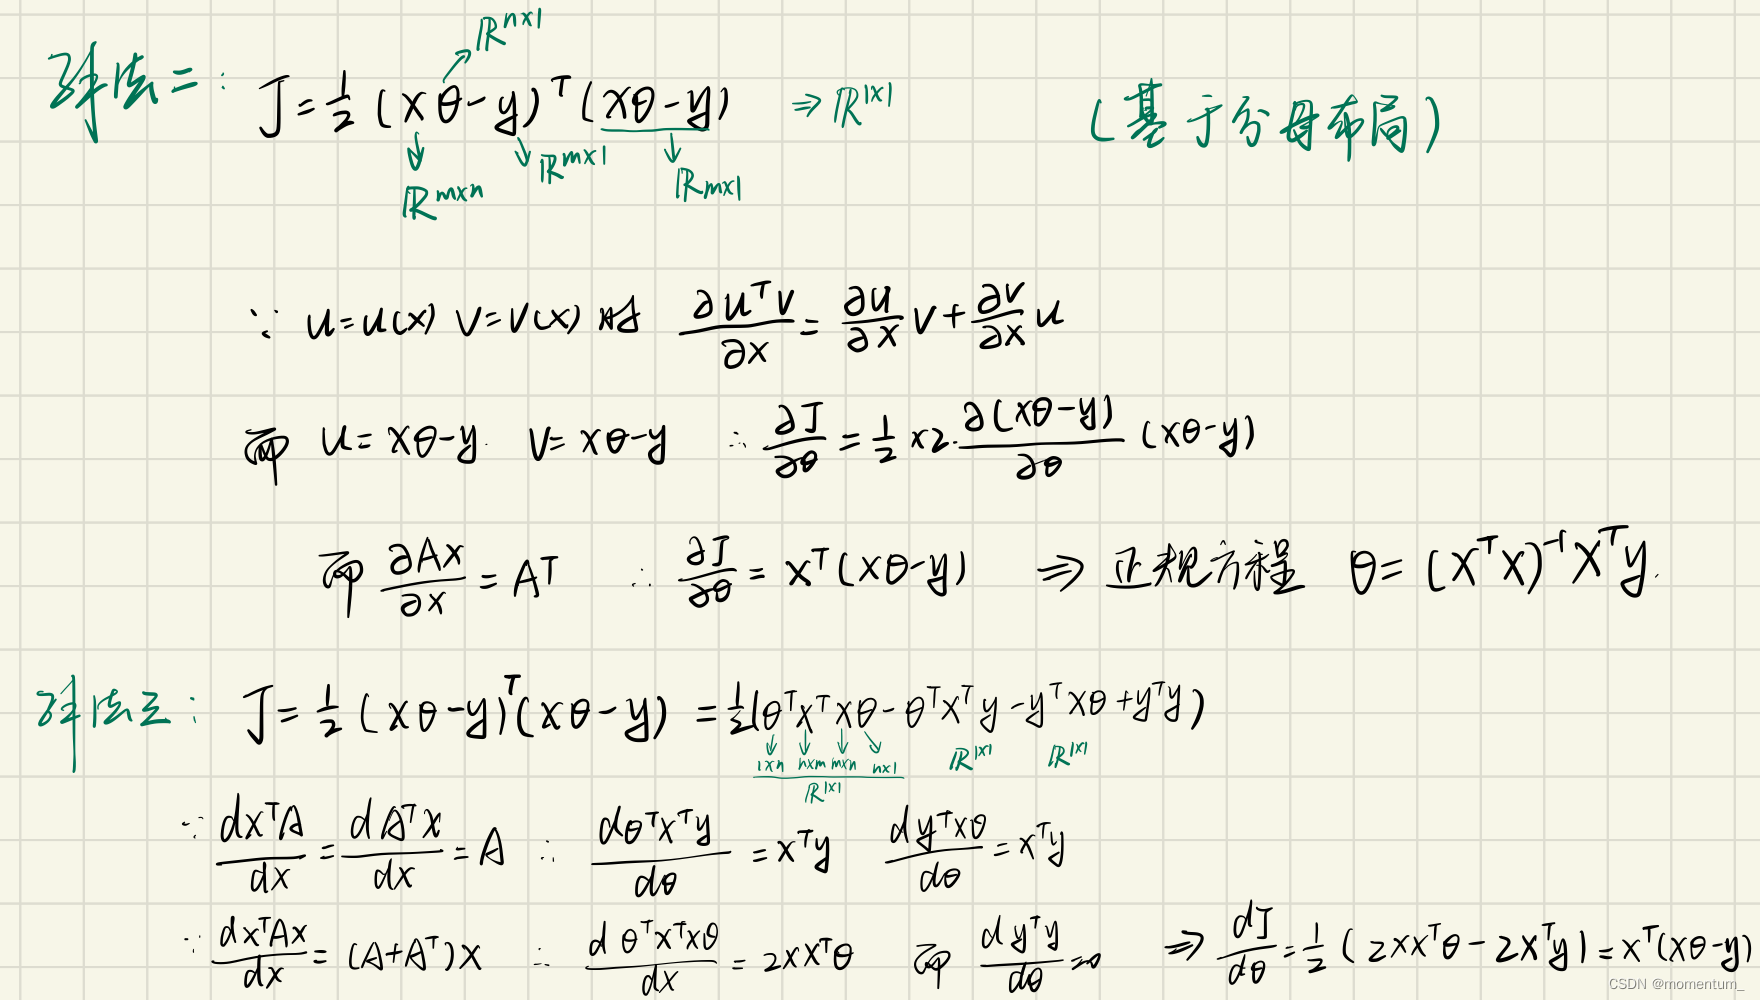 解法二： J = 1/2 (Xθ-y)ᵀ(Xθ-y) ⇒ ℝ¹ˣ¹ (基于分母布局)
ℝⁿˣ¹
ℝᵐˣⁿ ℝᵐˣ¹ ℝₘₓ₁
∵ u=u(x) v=v(x) 时 ∂uᵀv/∂x = ∂u/∂x v + ∂v/∂x u
而 u = Xθ-y v = Xθ-y ∴ ∂J/∂θ = 1/2 ×2·∂(Xθ-y)/∂θ (Xθ-y)
而 ∂Ax/∂x = Aᵀ ∴ ∂J/∂θ = Xᵀ(Xθ-y) ⇒ 正规方程 θ = (XᵀX)⁻¹Xᵀy.
解法三： J = 1/2 (Xθ-y)ᵀ(Xθ-y) = 1/2(θᵀXᵀXθ - θᵀXᵀy - yᵀXθ + yᵀy)
1×n n×m m×n n×1 ℝ¹ˣ¹ ℝ¹ˣ¹
ℝ¹ˣ¹
∵ dxᵀA/dx = dAᵀx/dx = A ∴ dθᵀXᵀy/dθ = Xᵀy dyᵀXθ/dθ = Xᵀy
∵ dxᵀAx/dx = (A+Aᵀ)x ∴ dθᵀXᵀXθ/dx = 2XXᵀθ 而 dyᵀy/dθ = 0 ⇒ dJ/dθ = 1/2 (2XXᵀθ - 2Xᵀy) = Xᵀ(Xθ-y)
CSDN @momentum_